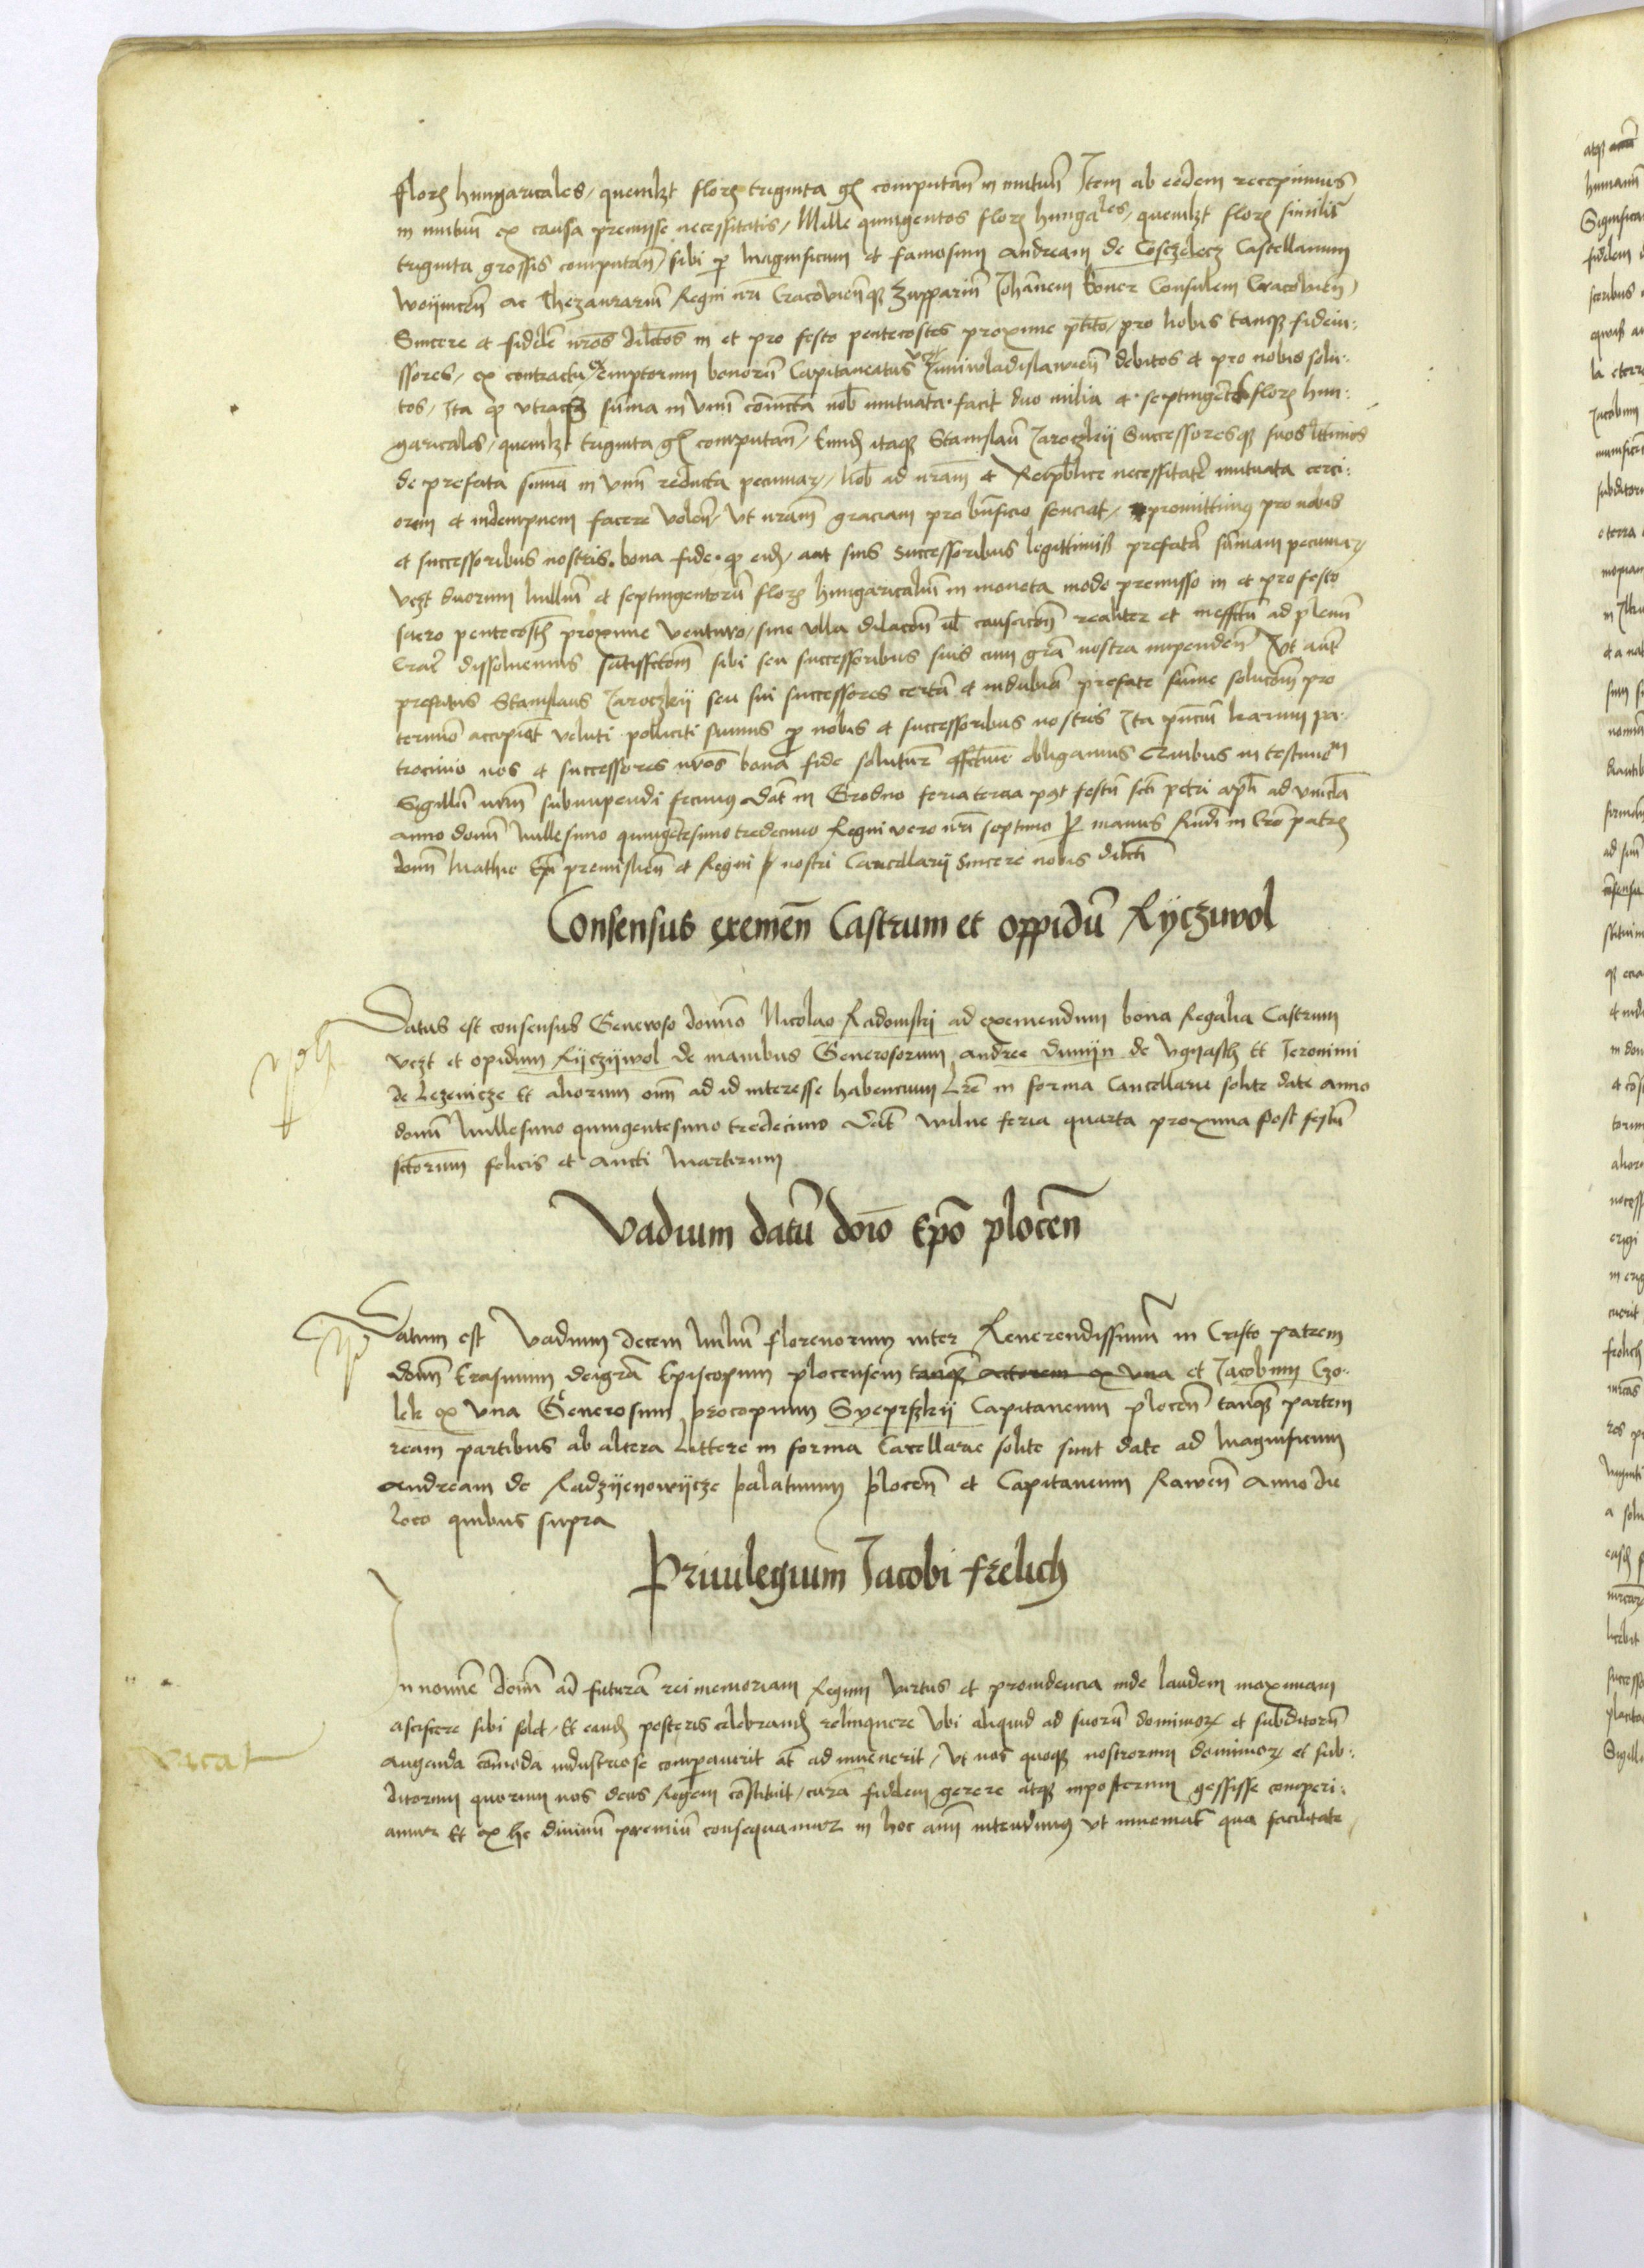 Florenos hungaricales, quemlibet florenum triginta gr computan in mutuum Item ab eodem recepimus
in mutuum ex causa premisse necessitatis, Mille quingentos floren hungales, quemlibet floren similiter
triginta grossis computan, sibi per Magnificum et famosum Andream de Cosczelecz Castellanum
Woijnicen ac Thezaurarium Regni nri Cracoviensque Zupparium Johannem Boner Consulem Cracovien
Sincere et fideles nros dilectos in et pro festo pentecostes proxime preterito, pro nobis tanquam fideiu:
ssores, ex contractu emptorum bonorum Capitaneatus Juniwladislavien debitos et pro nobis solu:
tos, Ita quod utraque summa in unum coniuncta nobis mutuata facit duo milia et septingentos floren hun:
garicales, quemlibet triginta gr computan, Eundem itaque Stanislaum Jaroczkij Successoresque suos littimos
de prefata summa in unum reducta pecuniarum, nobis ad nram et Reipublice necessitatem mutuata cerci:
orem et indempnem facere volen, ut nram graciam pro bnficio senciat, promittimus pro nobis
et successoribus nostris bona fide quod eidem, aut suis Successoribus legittimis prefatam summam pecuniar
videlicet duorum Millium et septingentorum floren hungaricalium in moneta modo premisso in et pro festo
sacro pentecosth proxime venturo, sine ulla dilacione vel causacione realiter et in effectum ad plenum
dissoluemus satisfaccionem sibi seu successoribus suis cum gra nostra impenden Ut autem
prefatus Stanislaus Jaroczkij seu sui successores certam et indubiam prefate summe solucionem pro
termino accipiant veluti polliciti sumus pro nobis et successoribus nostris Ita presencium harum pa:
trocinio nos et successores nros bona fide soluturum effective obligamus Quibus in testimonium
Sigillum nrum subimpendi fecimus Dat in Grodno feria tercia post festum scti petri apli ad vincula
anno domini Millesimo quingentesimo tredecimo Regni vero nri septimo per manus Rndi in Cro patris
domini Mathie Epi premislien et Regni nostri Cancellarij Sincere nobis dilecti
Consensus exemen Castrum et oppidum Ryczuwol
Datus est consensus Generoso domino Nicolao Radomski ad exemendum bona Regalia Castrum
videlicet et opidum Rijczijwol de manibus Generosorum Andree Dunijn de Vgyasth Et Jeronimi
de Lezenicze Et aliorum omnium ad id interesse habencium Lre in forma Cancellarie solite date anno
domini Millesimo quingentesimo tredecimo Dat Wilne feria quarta proxima post festum
sctorum felicis et Aucti Martirum
Vadium datum domino Epo plocen
Datum est Vadium decem Milium florenorum inter Reverendissimum in Cristo patrem
domin Erasmum dei gra Episcopum plocensem tanquam actorem ex una et Jacobum Czo:
lek ex una Generosum procopium Syeprszkij Capitaneum plocen tanquam partem
ream partibus ab altera Littere in forma Cacellarie solite sunt date ad Magnificum
Andream de Radzijeyowijcze palatinum plocen et Capitaneum Rawen Anno die
loco quibus supra
Priuilegium Jacobi frelich
In nomine domini ad futuram rei memoriam Regum virtus et prouidencia inde laudem maximam
asciscere sibi solet, Et eandem posteris celebrandam relinquere Ubi aliquid ad suorum dominiorum et subditorum
vacat
augenda commoda industriose comparuerit aut adinuenerit, Ut nos quoque nostrorum dominiorum et sub:
ditorum quorum nos deus Regem constituit, curam fidelem gerere atque inposterum gessisse comperi:
amur Et ex hoc diuinum premium consequamur in hoc animum intendimus ut inueniat qua facilitate,